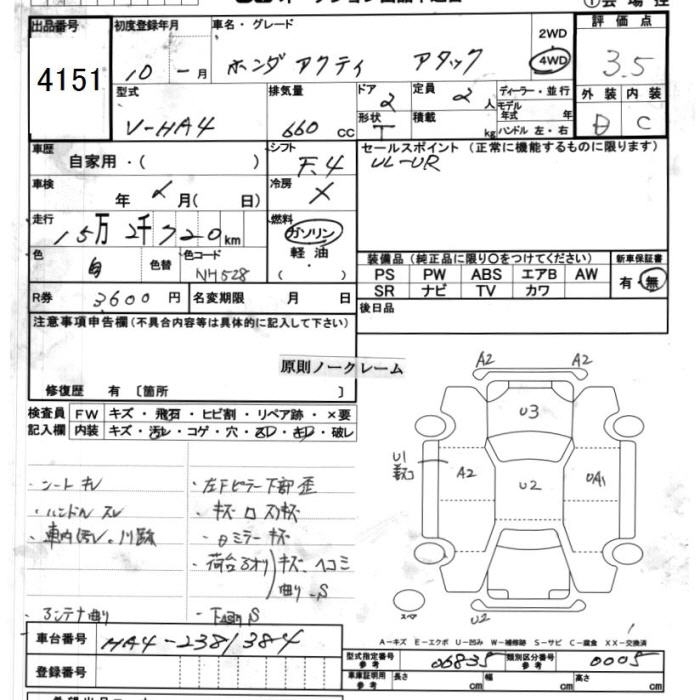 出品番号 初度登録年月 車名・グレード 評価点
4151 10 - 月 ホンダ アクティ アタック 2WD 4WD 3.5
型式 排気量 ドア 2 定員 2 人 ディーラー・並行 外装 内装
V-HA4 660 cc 形状 T 積載 kg モデル年式 年 ハンドル 左・右 D C
車歴 自家用・( ) シフト F.4 セールスポイント(正常に機能するものに限ります)
UL-UR
車検 年 月( 日) 冷房 ×
走行 15万2千720km 燃料 ガソリン
軽油 ( )
色 白 色替 色コード NH528
装備品(純正品に限り○をつけてください) 新車保証書
PS PW ABS エアB AW 有・無
SR ナビ TV カワ
R券 3600円 名変期限 月 日 後日品
注意事項申告欄(不具合内容等は具体的に記入して下さい)
原則ノークレーム
修復歴 有 〔箇所 〕
検査員 FW キズ・飛石・ヒビ割・リペア跡・×要
記入欄 内装 キズ・汚レ・コゲ・穴・スレ・キレ・破レ
A2 A2
U3
U1
A2 U2
U2
スペア
・シートキレ
・ハンドルスレ
・左Fピラー下部歪
・ドミラーキズ
・荷台 キズ、ヘコミ
曲り、S
・アンテナ曲り
A-キズ E-エクボ U-凹み W-補修跡 S-サビ C-腐食 XX-交換済
車台番号 HA4-2381384
登録番号
型式指定番号 参考 06835 類別区分番号 参考 0005
車庫証明用 参考 長さ cm 幅 cm 高さ cm